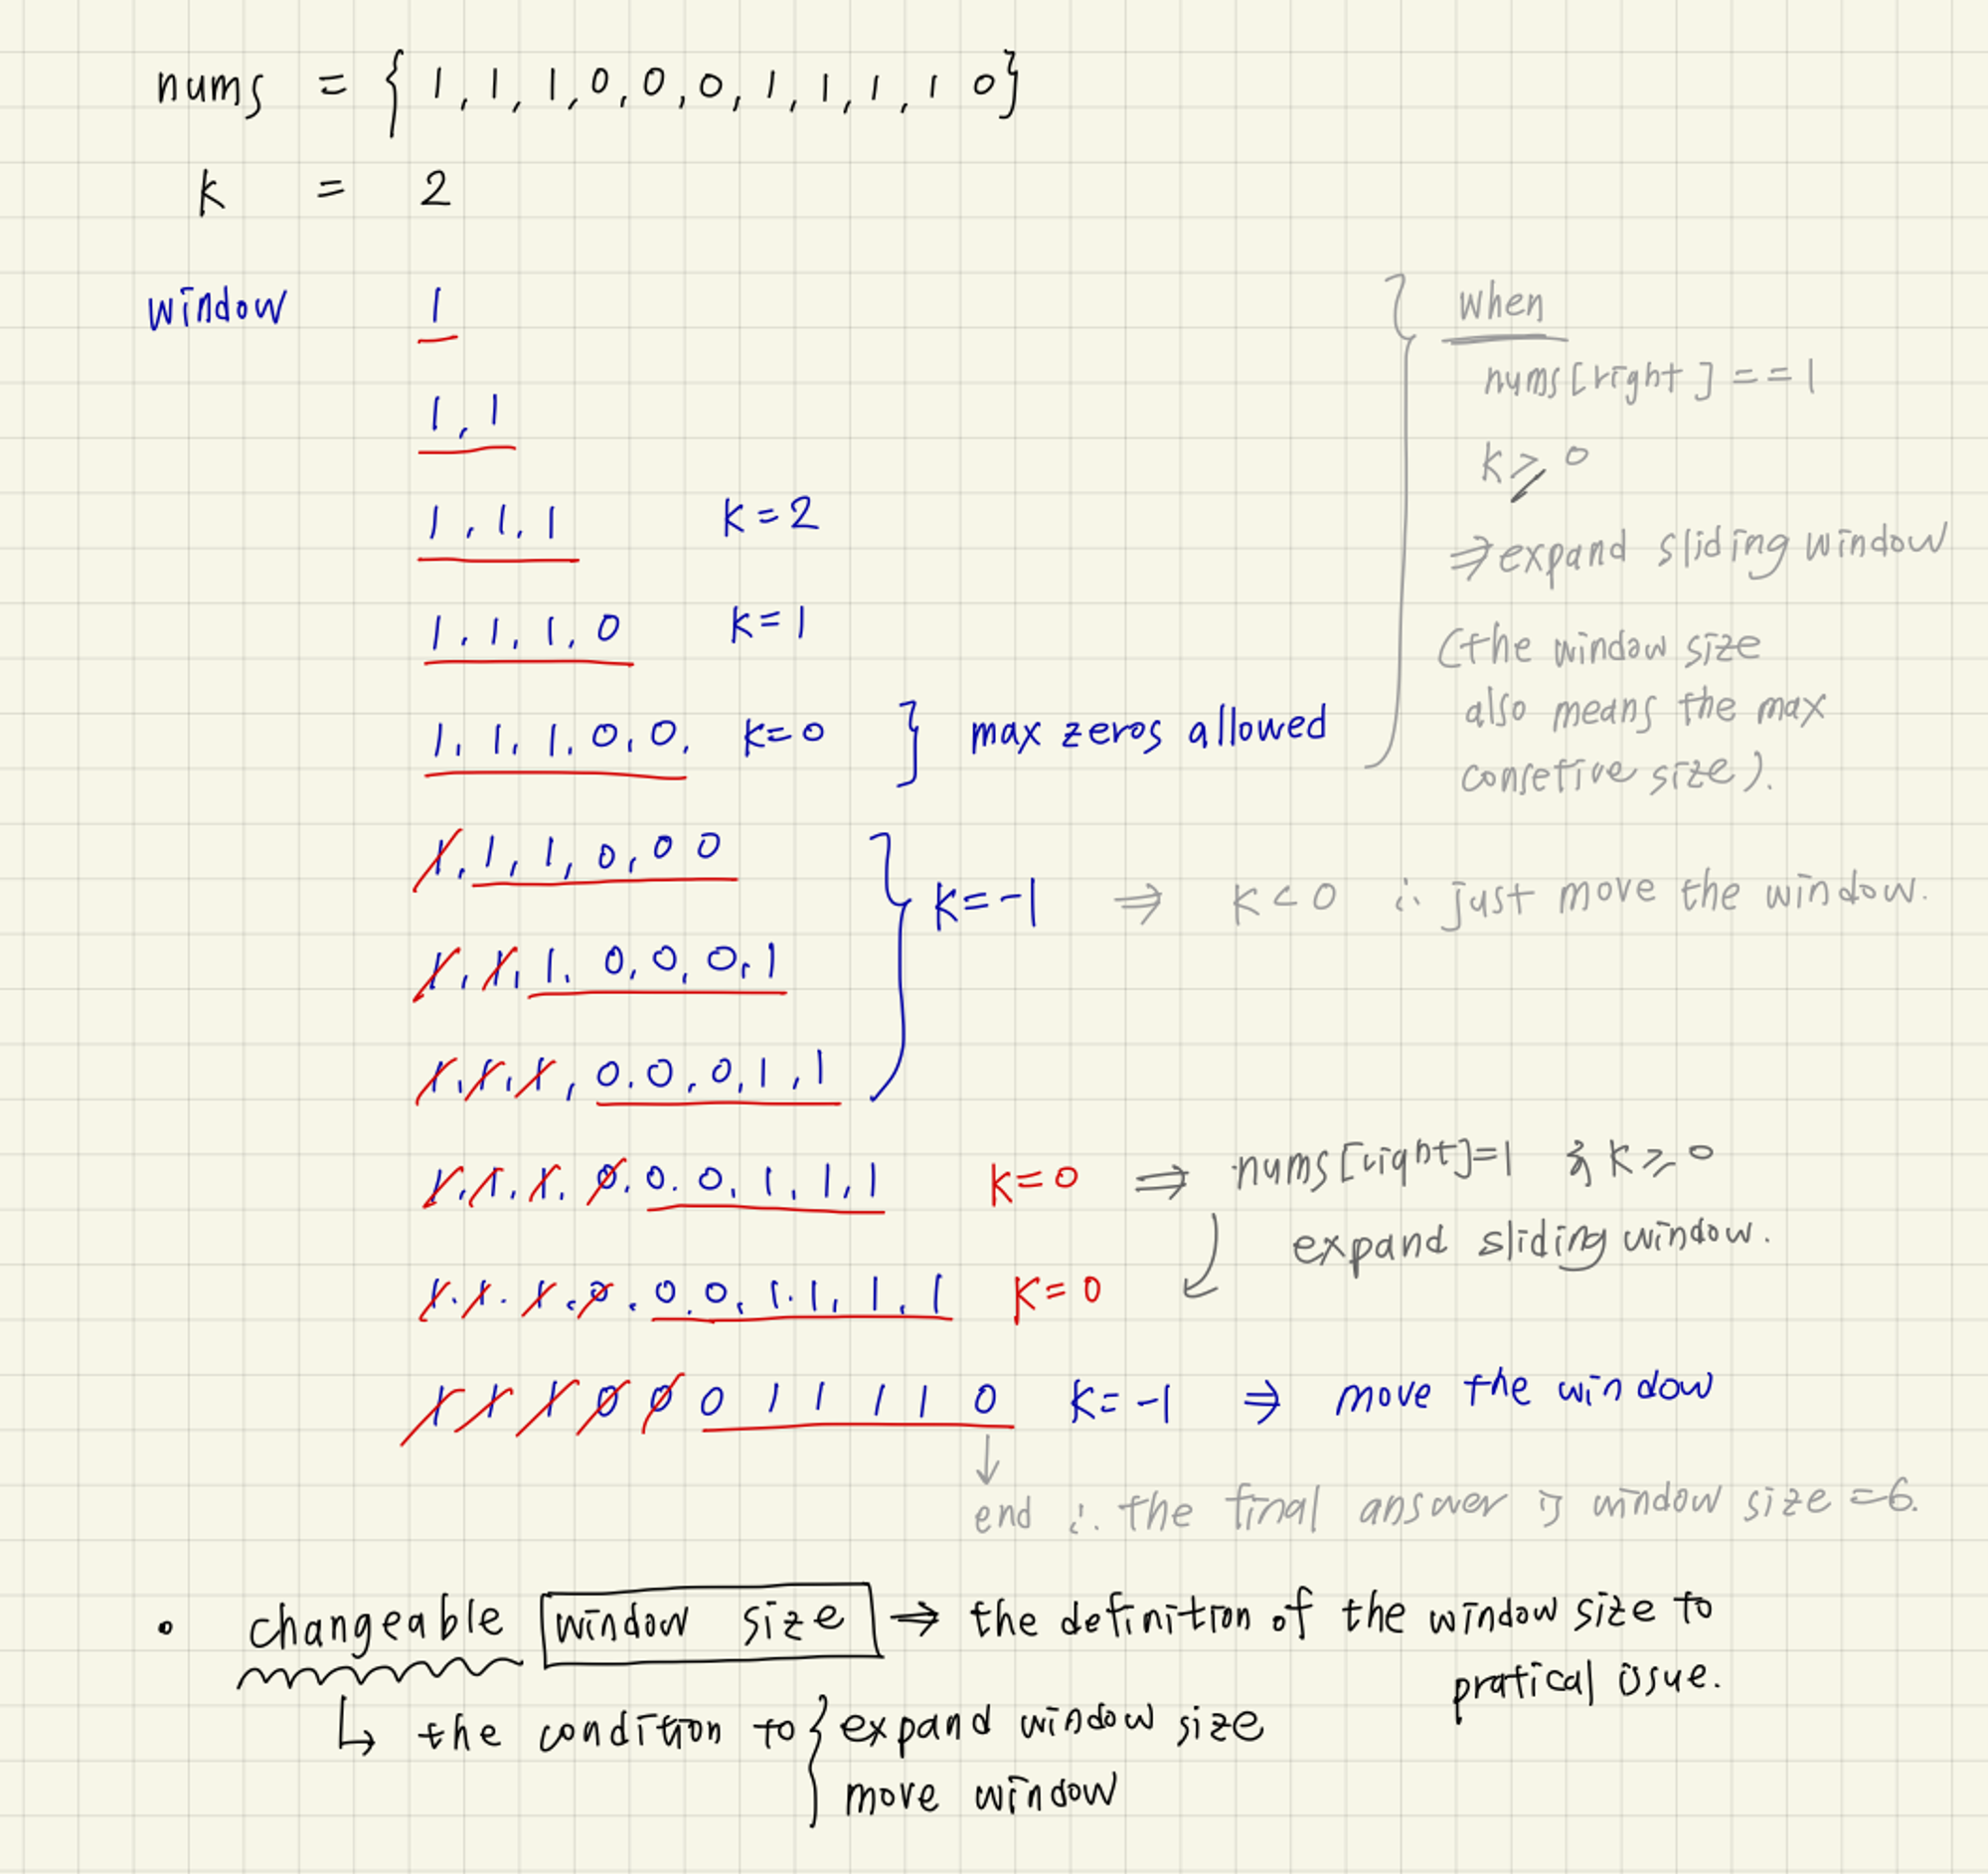 nums = { 1, 1, 1, 0, 0, 0, 1, 1, 1, 1 0}
k = 2
window 1
1, 1
1, 1, 1 k=2
1, 1, 1, 0 k=1
1, 1, 1, 0, 0, k=0 } max zeros allowed
} when
nums[right] == 1
k ≥ 0
⇒ expand sliding window
(the window size
also means the max
consetive size).
1, 1, 1, 0, 0 0
1, 1, 1, 0, 0, 0, 1
1, 1, 1, 0, 0, 0, 1, 1
} k=-1 ⇒ k<0 ∴ just move the window.
1, 1, 1, 0, 0, 0, 1, 1, 1 k=0 ⇒ nums[right]=1 & k≥0
expand sliding window.
1, 1, 1, 0, 0, 0, 1, 1, 1, 1 k=0
1 1 1 0 0 0 1 1 1 1 0 k=-1 ⇒ move the window
↓
end ∴ the final answer is window size =6.
• changeable window size ⇒ the definition of the window size to
pratical issue.
↳ the condition to { expand window size
move window